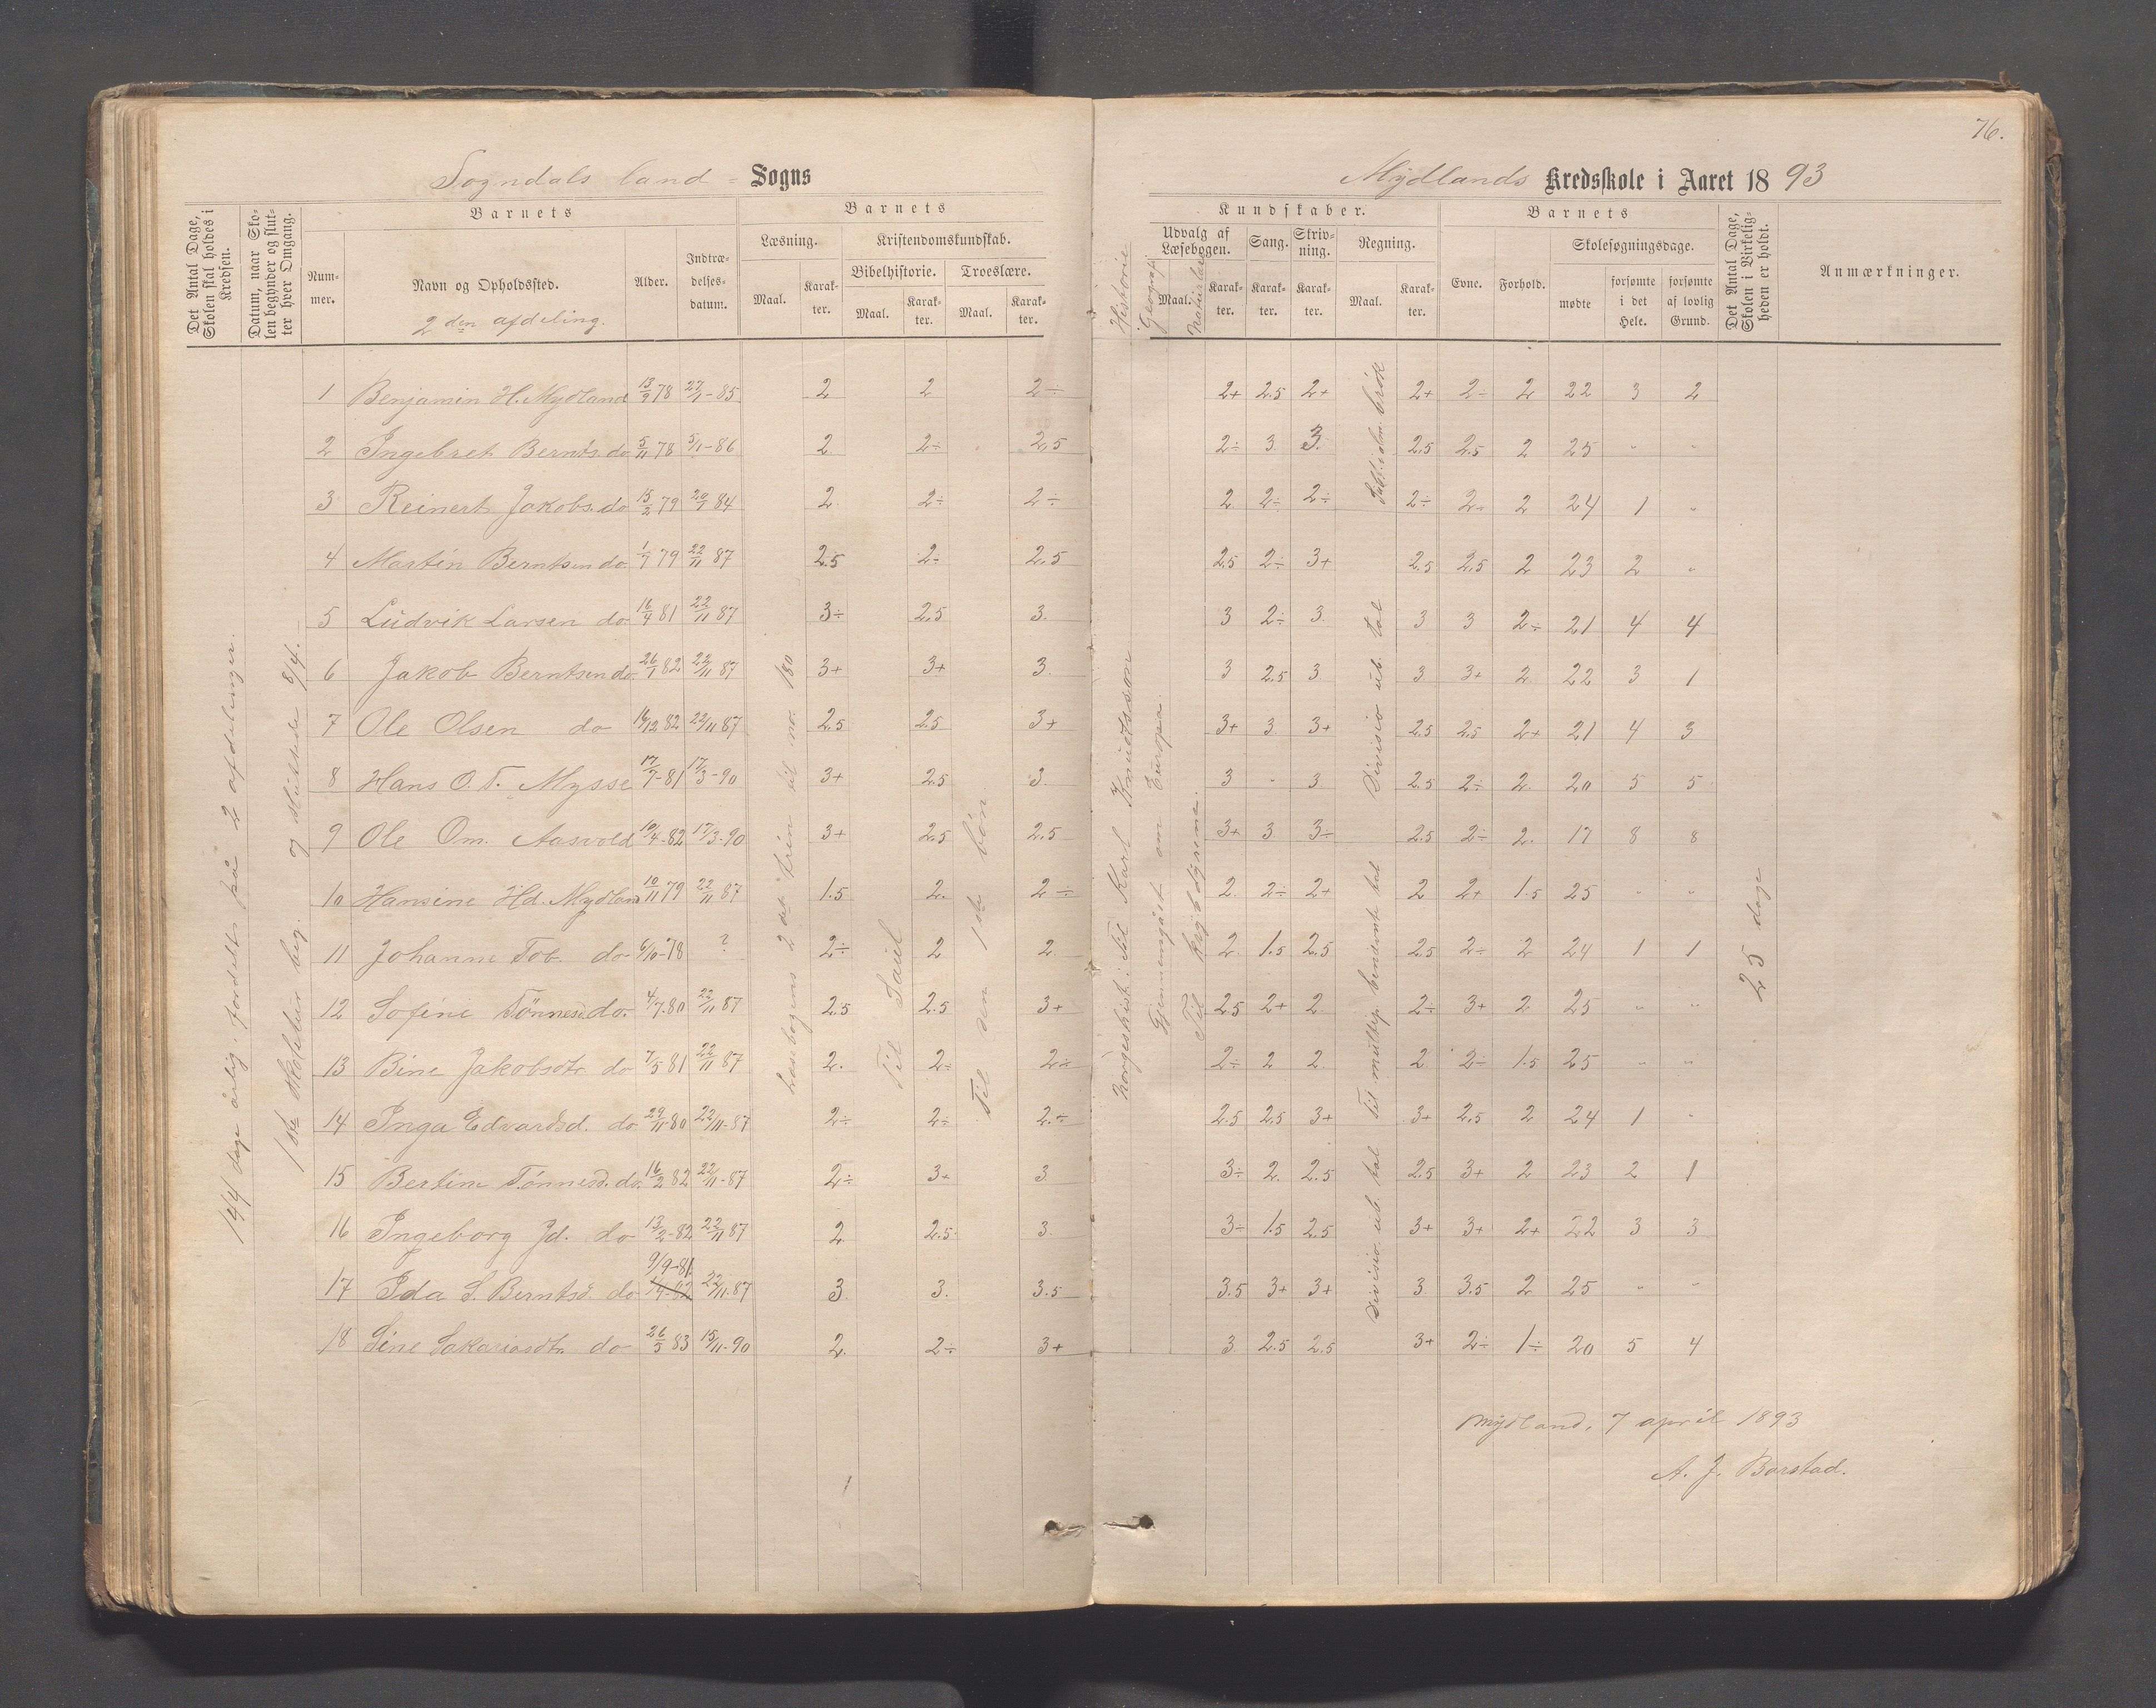 76.
Sogndals land - Sogns
Mydlands Kredsskole i Aaret 1893
Det Antal Dage, Skolen skal holdes i Kredsen.
Datum, naar Skolen begynder og slutter hver Omgang.
Barnets
Nummer.
Navn og Opholdssted.
2den afdeling.
Alder.
Indtrædelsesdatum.
Barnets
Læsning.
Maal.
Karakter.
Kristendomskundskab.
Bibelhistorie.
Maal.
Karakter.
Troeslære.
Maal.
Karakter.
Kundskaber.
Historie
Geografi
Naturlære
Udvalg af Læsebogen.
Maal.
Karakter.
Sang.
Karakter.
Skrivning.
Karakter.
Regning.
Maal.
Karakter.
Barnets
Evne.
Forhold.
Skolesøgningsdage.
mødte
forsømte i det Hele.
forsømte af lovlig Grund.
Det Antal Dage, Skolen i Virkeligheden er holdt.
Anmærkninger.
144 dage årlig, fordelt på 2 afdelinger.
1ste skoletur beg. og sluttede 8/4.
Læsebogens 2det trin til no. 180
Til Saul
Til den 1ste bøn
Norgeshist: til Karl Knudtsson
Gjennemgåst om Europa.
Til krybdyrene.
Subt. i alm. brøk
Divisio ub. tal
Til multip. benævnte tal
Divisio ub. tal
25 dage
1 Benjamin H. Mydland 13/9 78 27/1-85 2 2 2÷ 2+ 2.5 2+ 2+ 2÷ 2 22 3 2
2 Ingebret Bernts. do 5/11 78 5/11-86 2 2÷ 2.5 2÷ 3 3. 2.5 2.5 2 25 " "
3 Reinert Jakobs. do 15/2 79 20/1 84 2 2÷ 2÷ 2 2÷ 2÷ 2÷ 2÷ 2 24 1 "
4 Martin Berntsen do 1/7 79 22/11 87 2.5 2÷ 2.5 2.5 2÷ 3+ 2.5 2.5 2 23 2 "
5 Ludvik Larsen do 16/4 81 22/11 87 3÷ 2.5 3. 3 2÷ 3. 3 3 2÷ 21 4 4
6 Jakob Berntsen do. 26/1 82 22/11 87 3+ 3+ 3. 3 2.5 3 3 3+ 2 22 3 1
7 Ole Olsen do 16/12 82 22/11 87 2.5 2.5 3+ 3+ 3 3+ 2.5 2.5 2+ 21 4 3
8 Hans O. T. Mysse 17/7-81 17/3-90 3+ 2.5 3. 3 - 3 2.5 2÷ 2. 20 5 5
9 Ole Om. Aasvold 10/4-82 17/3-90 3+ 2.5 2.5 3+ 3 3÷ 2.5 2÷ 2. 17 8 8
10 Hansine Hd. Mydland 10/11 79 22/11 87 1.5 2. 2÷ 2. 2÷ 2+ 2 2+ 1.5 25 " "
11 Johanne Tob. do 6/10-78 ? 2÷ 2 2 2. 1.5 2.5 2.5 2÷ 2 24 1 1
12 Sofine Tønnesd. do. 4/7.80 22/11 87 2.5 2.5 3+ 2.5 2+ 2. 2÷ 3+ 2 25 " "
13 Bine Jakobsdtr do 7/5 81 22/11 87 2. 2÷ 2÷ 2÷ 2 2 2 2÷ 1.5 25 " "
14 Inga Edvardsd. do 29/11-80 22/11-87 2÷ 2÷ 2÷ 2.5 2.5 3+ 3+ 2.5 2 24 1 "
15 Bertine Tønnesd. do. 16/2 82 22/11-87 2÷ 3+ 3 3÷ 2. 2.5 2.5 3+ 2 23 2 1
16 Ingeborg Jd. do 13/2-82 22/11 87 2 2.5 3. 3÷ 1.5 2.5 3+ 3+ 2+ 22 3 3
17 Ida S. Berntsd. do 9/9-81 22/11-87 3. 3. 3.5 3.5 3+ 3+ 3 3.5 2 25 " "
18 Sine Sakariasdtr do 26/5 83 15/11-90 2. 2÷ 3+ 3. 2.5 2.5 3+ 2÷ 1÷ 20 5 4
Mydland, 7 april 1893
A. J. Barstad.